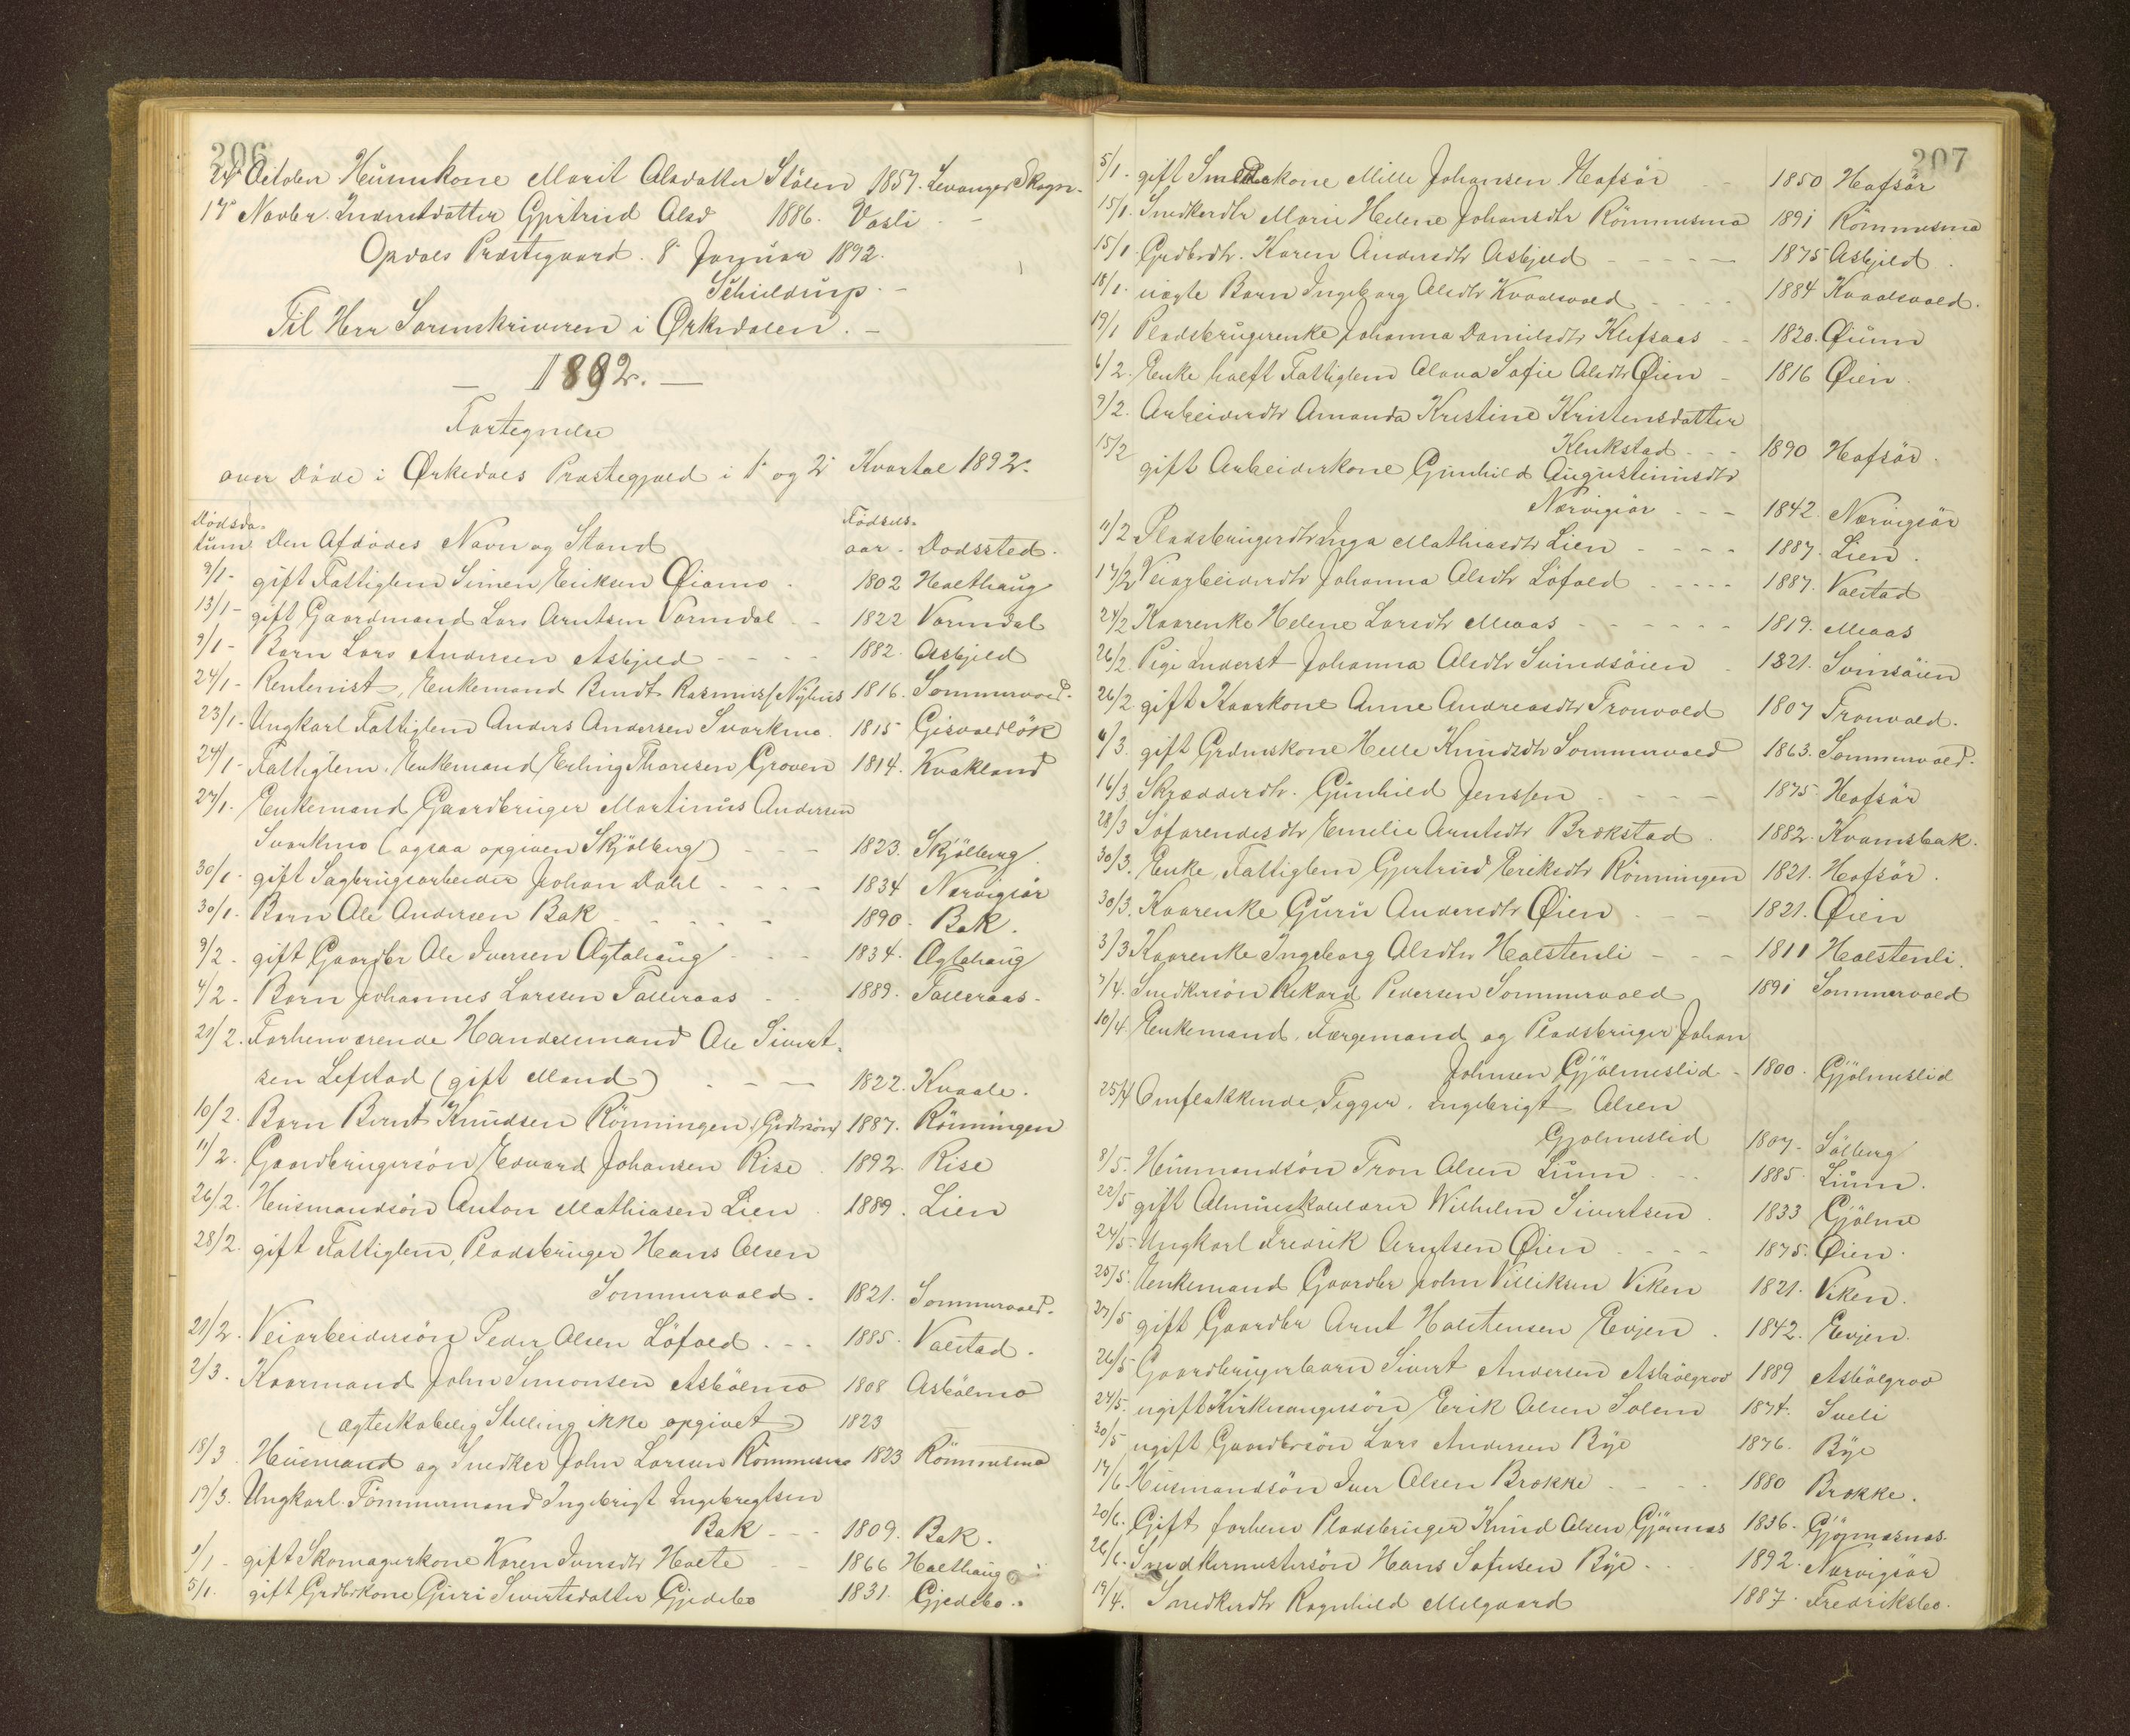 206
24 October Huusmkone Marit Olsdatter Stölen 1857. Levanger Skogn.
17 Novbr. Inderstdatter Gjertrud Olsd 1886. Vasli -
Opdals Præstegaard. 8 Januar 1892.
Schieldrup. -
Til Herr Sorenskriveren i Ørkedalen. -
- 1892. -
Fortegnelse
over Döde i Ørkedals Præstegjæld i 1 og 2 Kvartal 1892.
Dödsda- Födsels-
tum Den Afdödes Navn og Stand aar - Dödssted.
9/1 - gift Fattiglem Simen Eriksen Øiamo - 1802 Holthaug
13/1 - gift Gaardmand Lars Arntsen Vormdal - - 1822 Vormdal
9/1 - Barn Lars Andersen Asbjeld - - - - 1882. Asbjeld
24/1 - Rentenist, Enkemand Berndt Rasmussen Nyhus 1816. Sommervold.
23/1 - Ungkarl Fattiglem Anders Andersen Svorkmo. 1815 Gisvoldlök
24/1 - Fattiglem. Enkemand Erling Thoresen Groven 1814. Kvakland
27/1. Enkemand Gaardbruger Martinus Andersen
Svorkmo (ogsaa opgiven Skjölberg) - - - 1823. Skjölberg.
30/1. gift Sagbrugsarbeider Johan Dahl - - - - 1834 Nervigsör
30/1. Barn Ole Andersen Bak - - - - - 1890. Bak.
9/2 - gift Gaardbr Ole Iversen Agtahaug - - - 1834. Agtahaug
4/2 - Barn Johannes Larssen Talleraas - - 1889. Talleraas -
21/2. Forhenværende Handelsmand Ole Sivert-
sen Lefstad (gift Mand) - - - 1822. Kvaale.
10/2. Barn Bernt Knudsen Rönningen (Grdbrsön) 1887. Rönningen
11/2. Gaardbrugersön Edvard Johansen Rise . 1892. Rise
26/2. Husmandsön Anton Mathiasen Lien . 1889. Lien
28/2. gift Fattiglem, Pladsbruger Hans Olsen
Sommervold. 1821. Sommervold.
21/2. Veiarbeidersön Peder Olsen Löfald . - - 1885. Valstad.
2/3. Kaarmand John Simonsen Asbölmo 1808 Asbölmo
(ægteskabelig Stilling ikke opgivet) 1823
18/3. Husmand og Snedker John Larsen Römmesmo 1823 Römmesmo
19/3. Ungkarl. Tömmermand Ingebrigt Ingebregtsen
Bak - - - 1809. Bak.
1/1 - gift Skomagerkone Karen Iversdtr Holte - - 1866 Holthaug
5/1. gift Grdbrkone Guri Sivertsdatter Gjedebo 1831. Gjedebo.
207
5/1 - gift Smedkone Mille Johansen Hafsör - - 1850 Hafsör
15/1. Snedkerdtr Marie Helene Johansdtr Römmesmo 1891 Römmesmo
15/1 Grdbrdtr. Karen Andersdtr Asbjeld - - - - - 1875 Asbjeld.
18/1. uægte Barn Ingeborg Olsdtr Kvaalsvold - - - - 1884 Kvaalsvold.
19/1 Pladsbrugerenke Johanna Danielsdtr Klefsaas - - 1820. Øium
6/2. Enke halft Fattiglem Olava Sofie Olsdtr Øien - 1816 Øien.
9/2. Arbeiderdtr Amanda Kristine Kristensdatter
Klukstad - - - 1890 Hafsör.
15/2 gift Arbeiderkone Gunhild Augustinusdtr
Nærvigsör - - - 1842. Nærvigsör
11/2 Pladsbrugerdtr Inga Mathiasdtr Lien - - - - 1887. Lien.
17/2 Veiarbeiderdtr Johanna Olsdtr Löfald - - - - 1887. Valstad
24/2 Kaarenke Helene Larsdtr Moas - - - - - - 1819. Moas
26/2. Pige Inderst Johanna Olsdtr Svindsöien - 1821. Svinsöien
26/2 gift Kaarkone Anne Andreasdtr Tronvold 1807 Tronvold.
6/3. gift Grdmskone Helle Knudsdtr Sommervold 1863. Sommervold.
16/3 Skrædderdtr. Gunhild Jenssen - - - - - 1875 Hafsör
28/3 Söfarendes dtr Emelie Arntsdtr Brekstad . 1882. Kvamsbak.
30/3. Enke, Fattiglem Gjertrud Eriksdtr Rönningen 1821. Hafsör.
30/3. Kaarenke Guru Andersdtr Øien - - - 1821. Øien
3/3 Kaarenke Ingeborg Olsdtr Holstenli - - - 1811 Holstenli.
7/4. Snedkersön Rikard Pedersen Sommervold 1891 Sommervold
10/4 Enkemand. Færgemand og Pladsbruger Johan
Johnsen Gjölmeslid - 1800. Gjölmeslid
25/4 Omflakkende Tigger. Ingebrigt Olsen
Gjolmeslid 1807. Sölberg
8/5. Husmandsön Tron Olsen Lium - - - 1885. Lium.
22/5 gift Almueskolelærer Wilhelm Sivertsen . 1833 Gjölme
24/5. Ungkarl Fredrik Arntsen Øien - - - - 1875. Øien.
25/5. Enkemand Gaardbr John Villiksen Viken 1821. Viken.
27/5 gift Gaardbr Arnt Halstensen Evjen . 1842. Evjen.
26/5 Gaardbrugerbarn Sivert Andersen Asbölgrov 1889 Asbölgrov
24/5. ugift Kirkesangersön Erik Olsen Solem 1874. Sveli
30/5 ugift Gaardbrsön Lars Andersen Bye 1876. Bye
17/6 Husmandsön Iver Olsen Brokke - - - - 1880 Brokke.
20/6. Gift forhenv Pladsbruger Knud Olsen Gjönnes 1836. Gjönnesnes.
26/6. Snedkermestersön Hans Sofusen Bye. - - 1892. Nærvigsör
19/4. Snedkerdtr Ragnhild Melgaard 1887. Fredriksbo.